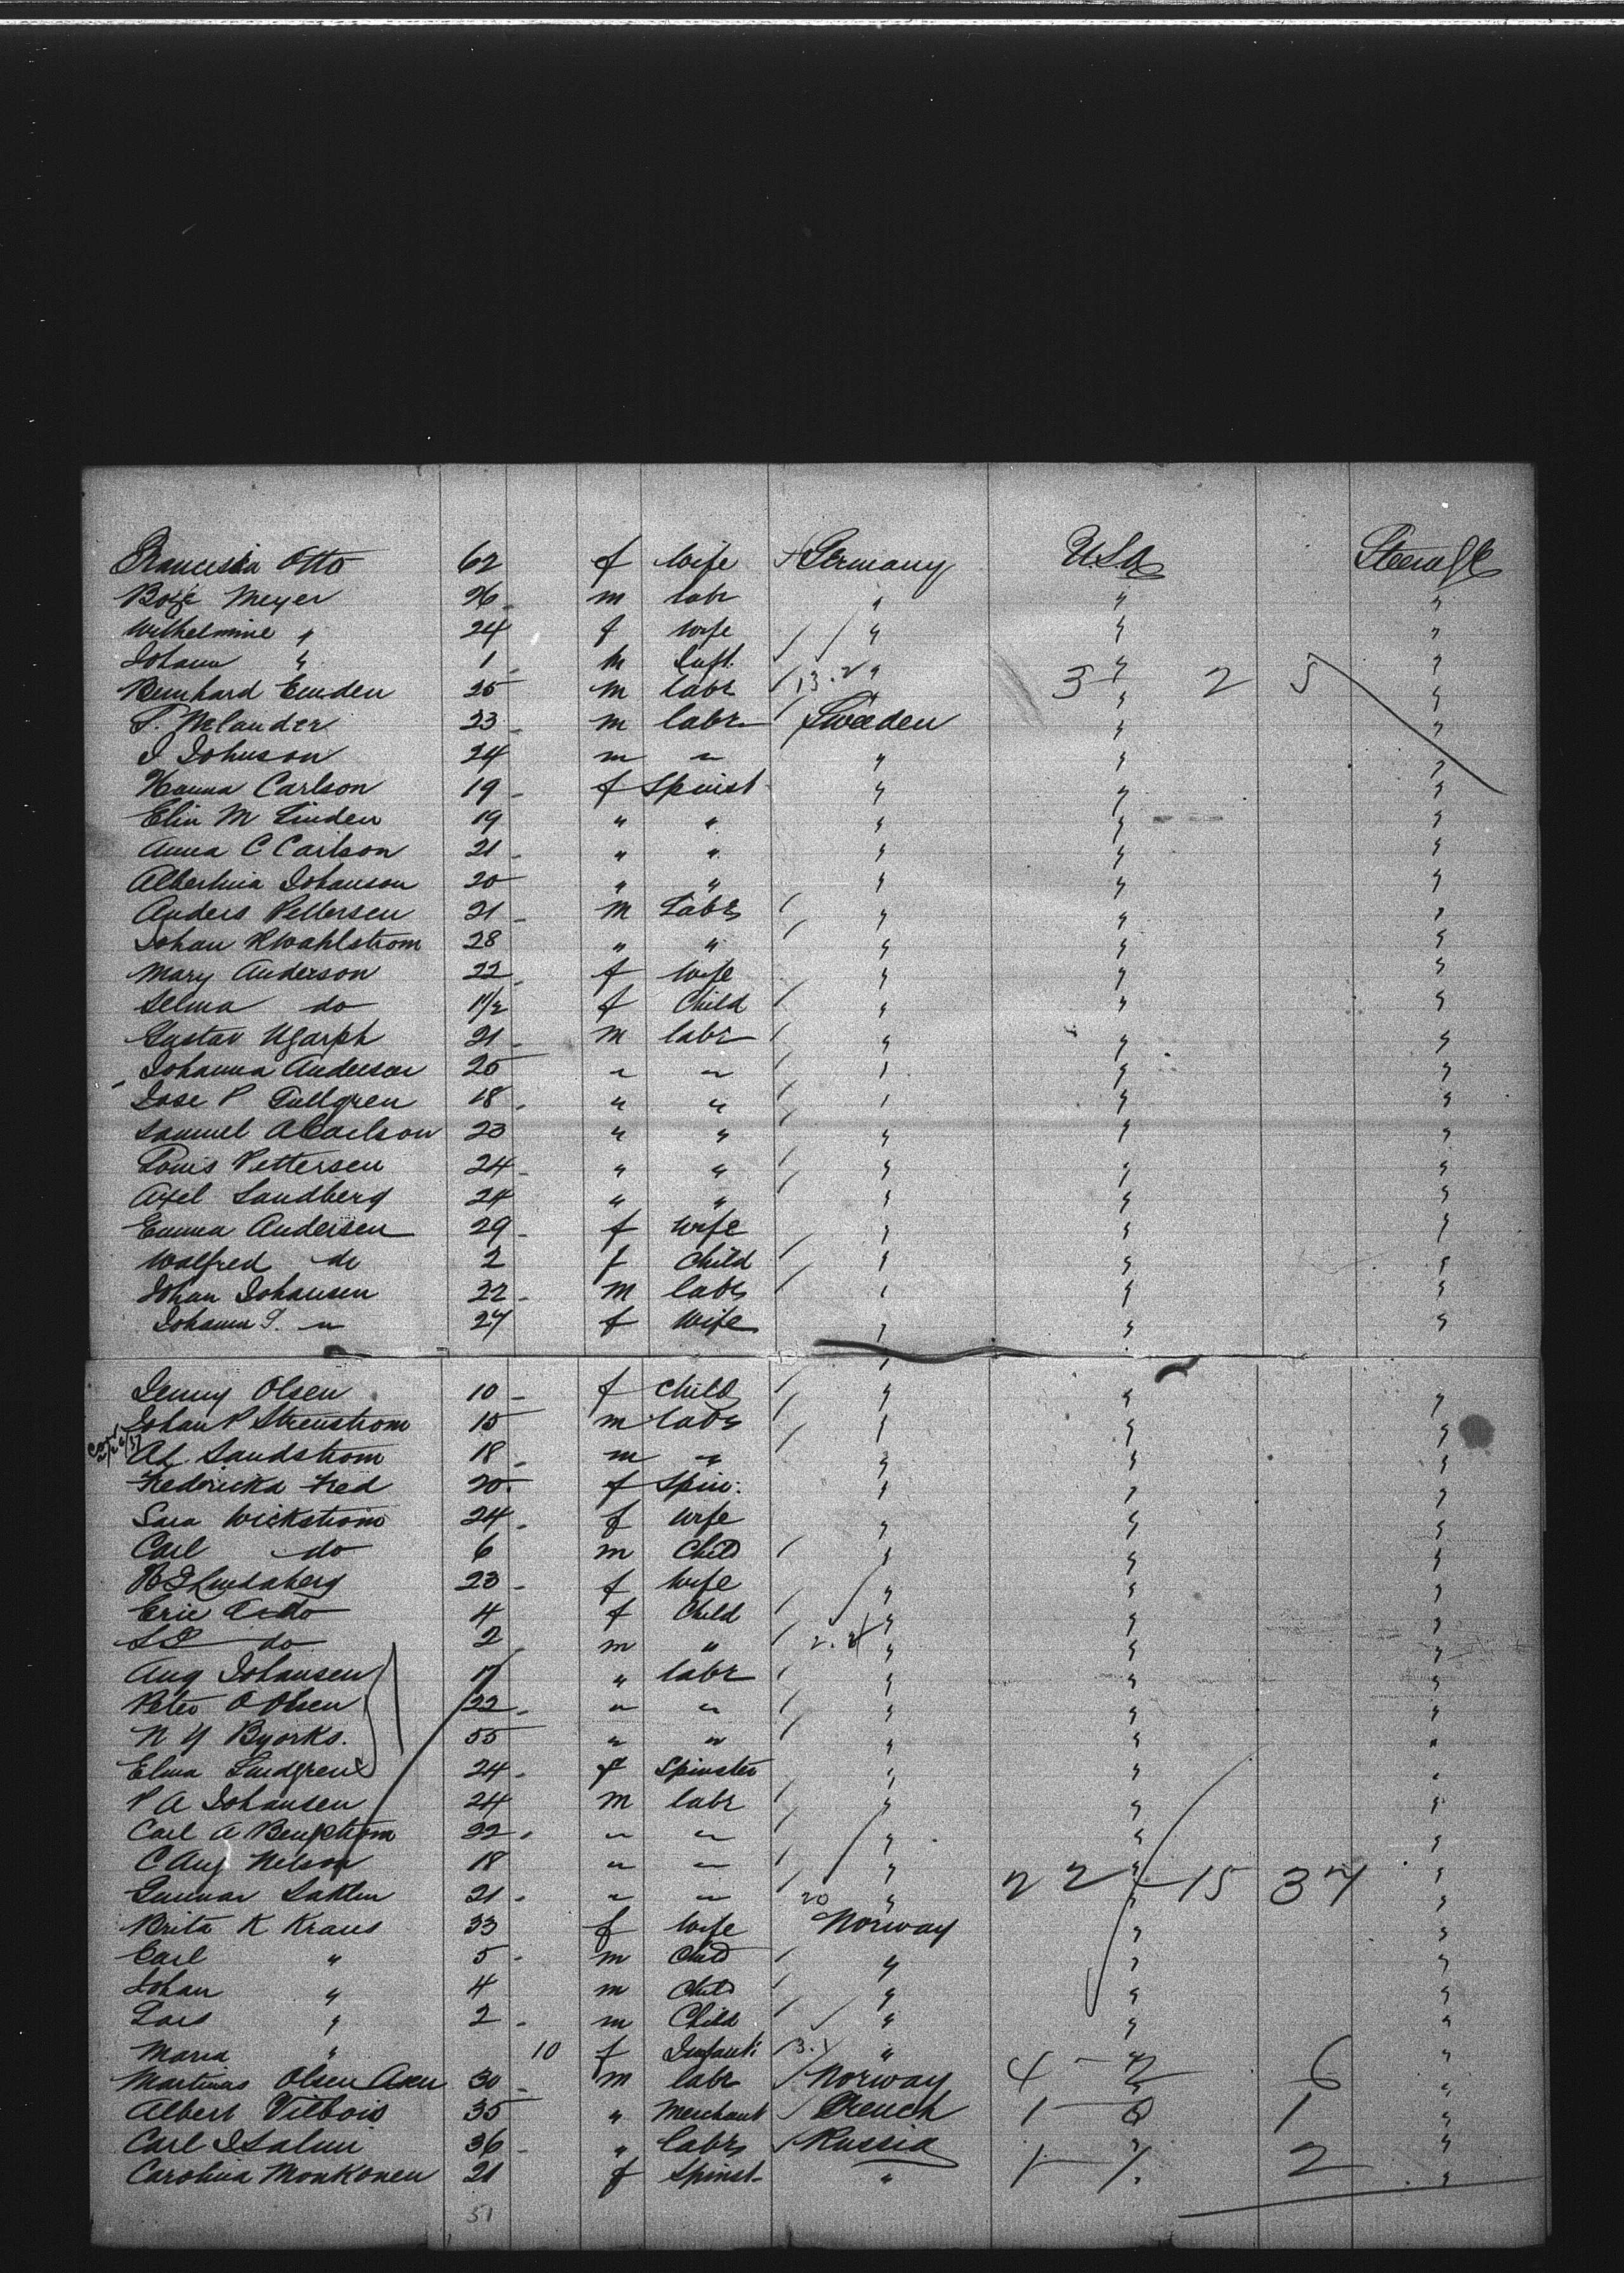 Franceska Otto 62 f Wife Germany U.S.A. Steerage
Meyer 26 m labr " " "
Wilhelmine " 24 f wife " " "
Johann " 1 m Inft. " " "
Bernhard Emden 25 m labr 13.2 " 3 - " 2 5 "
F. Melander 23 m labr Sweden " "
J Johnson 24 m " " " "
Hanna Carlson 19 f Spinst " " "
Elin M Linden 19 " " " " "
Anna C Carlson 21 " " " " "
Albertina Johanson 20 " " " " "
Anders Pettersen 21 M Labr " " "
Johan R Wahlstrom 28 " " " " "
Mary Anderson 22 f Wife " " "
Selma do 1 1/2 f Child " " "
Gustav 21 m labr " " "
Johanna Anderson 25 " " " " "
P Tullgren 18 " " " " "
Samuel A Carlson 23 " " " " "
Louis Pettersen 24 " " " " "
Axel Sandberg 24 " " " " "
Emma Andersen 29 f wife " " "
Walfred do 2 f Child " " "
Johan Johansen 22 m labr " " "
Johanna " 27 f Wife " " "
Jenny Olsen 10 f Child " " "
Johan P 15 m labr " " "
Sandstrom 18 m " " " "
Fredericka Fred 20 f Spin: " " "
Sara Wickstrom 24 f wife " " "
Carl do 6 m Child " " "
23 f wife " " "
Eric do 4 f Child " " "
do 2 m " 2.2 " " "
Aug Johansen 17 " labr " " "
Peter O Olsen 22 " " " " "
N Y Byorks. 55 " " " " "
Elma Lindgren 24 f Spinster " " "
P A Johansen 24 m labr " " "
Carl A 22 " " " " "
C Aug Nelson 18 " " " " "
Gunnar 21 " " 20 " 22 - 15 37 "
Brita K Kraus 33 f Wife Norway " "
Carl " 5 m Child " " "
Johan " 4 m Child " " "
Lars " 2 m Child " " "
Maria " 10 f Infant 3.1 " " "
Martinus Olsen 30 m labr Norway 4 - 2 6 "
Albert Vilbois 35 " Merchant French 1 - 0 1 "
Carl 36 " labr Russia " "
Carolina Monkonen 21 f Spinst " 1 - 1 2 "
51